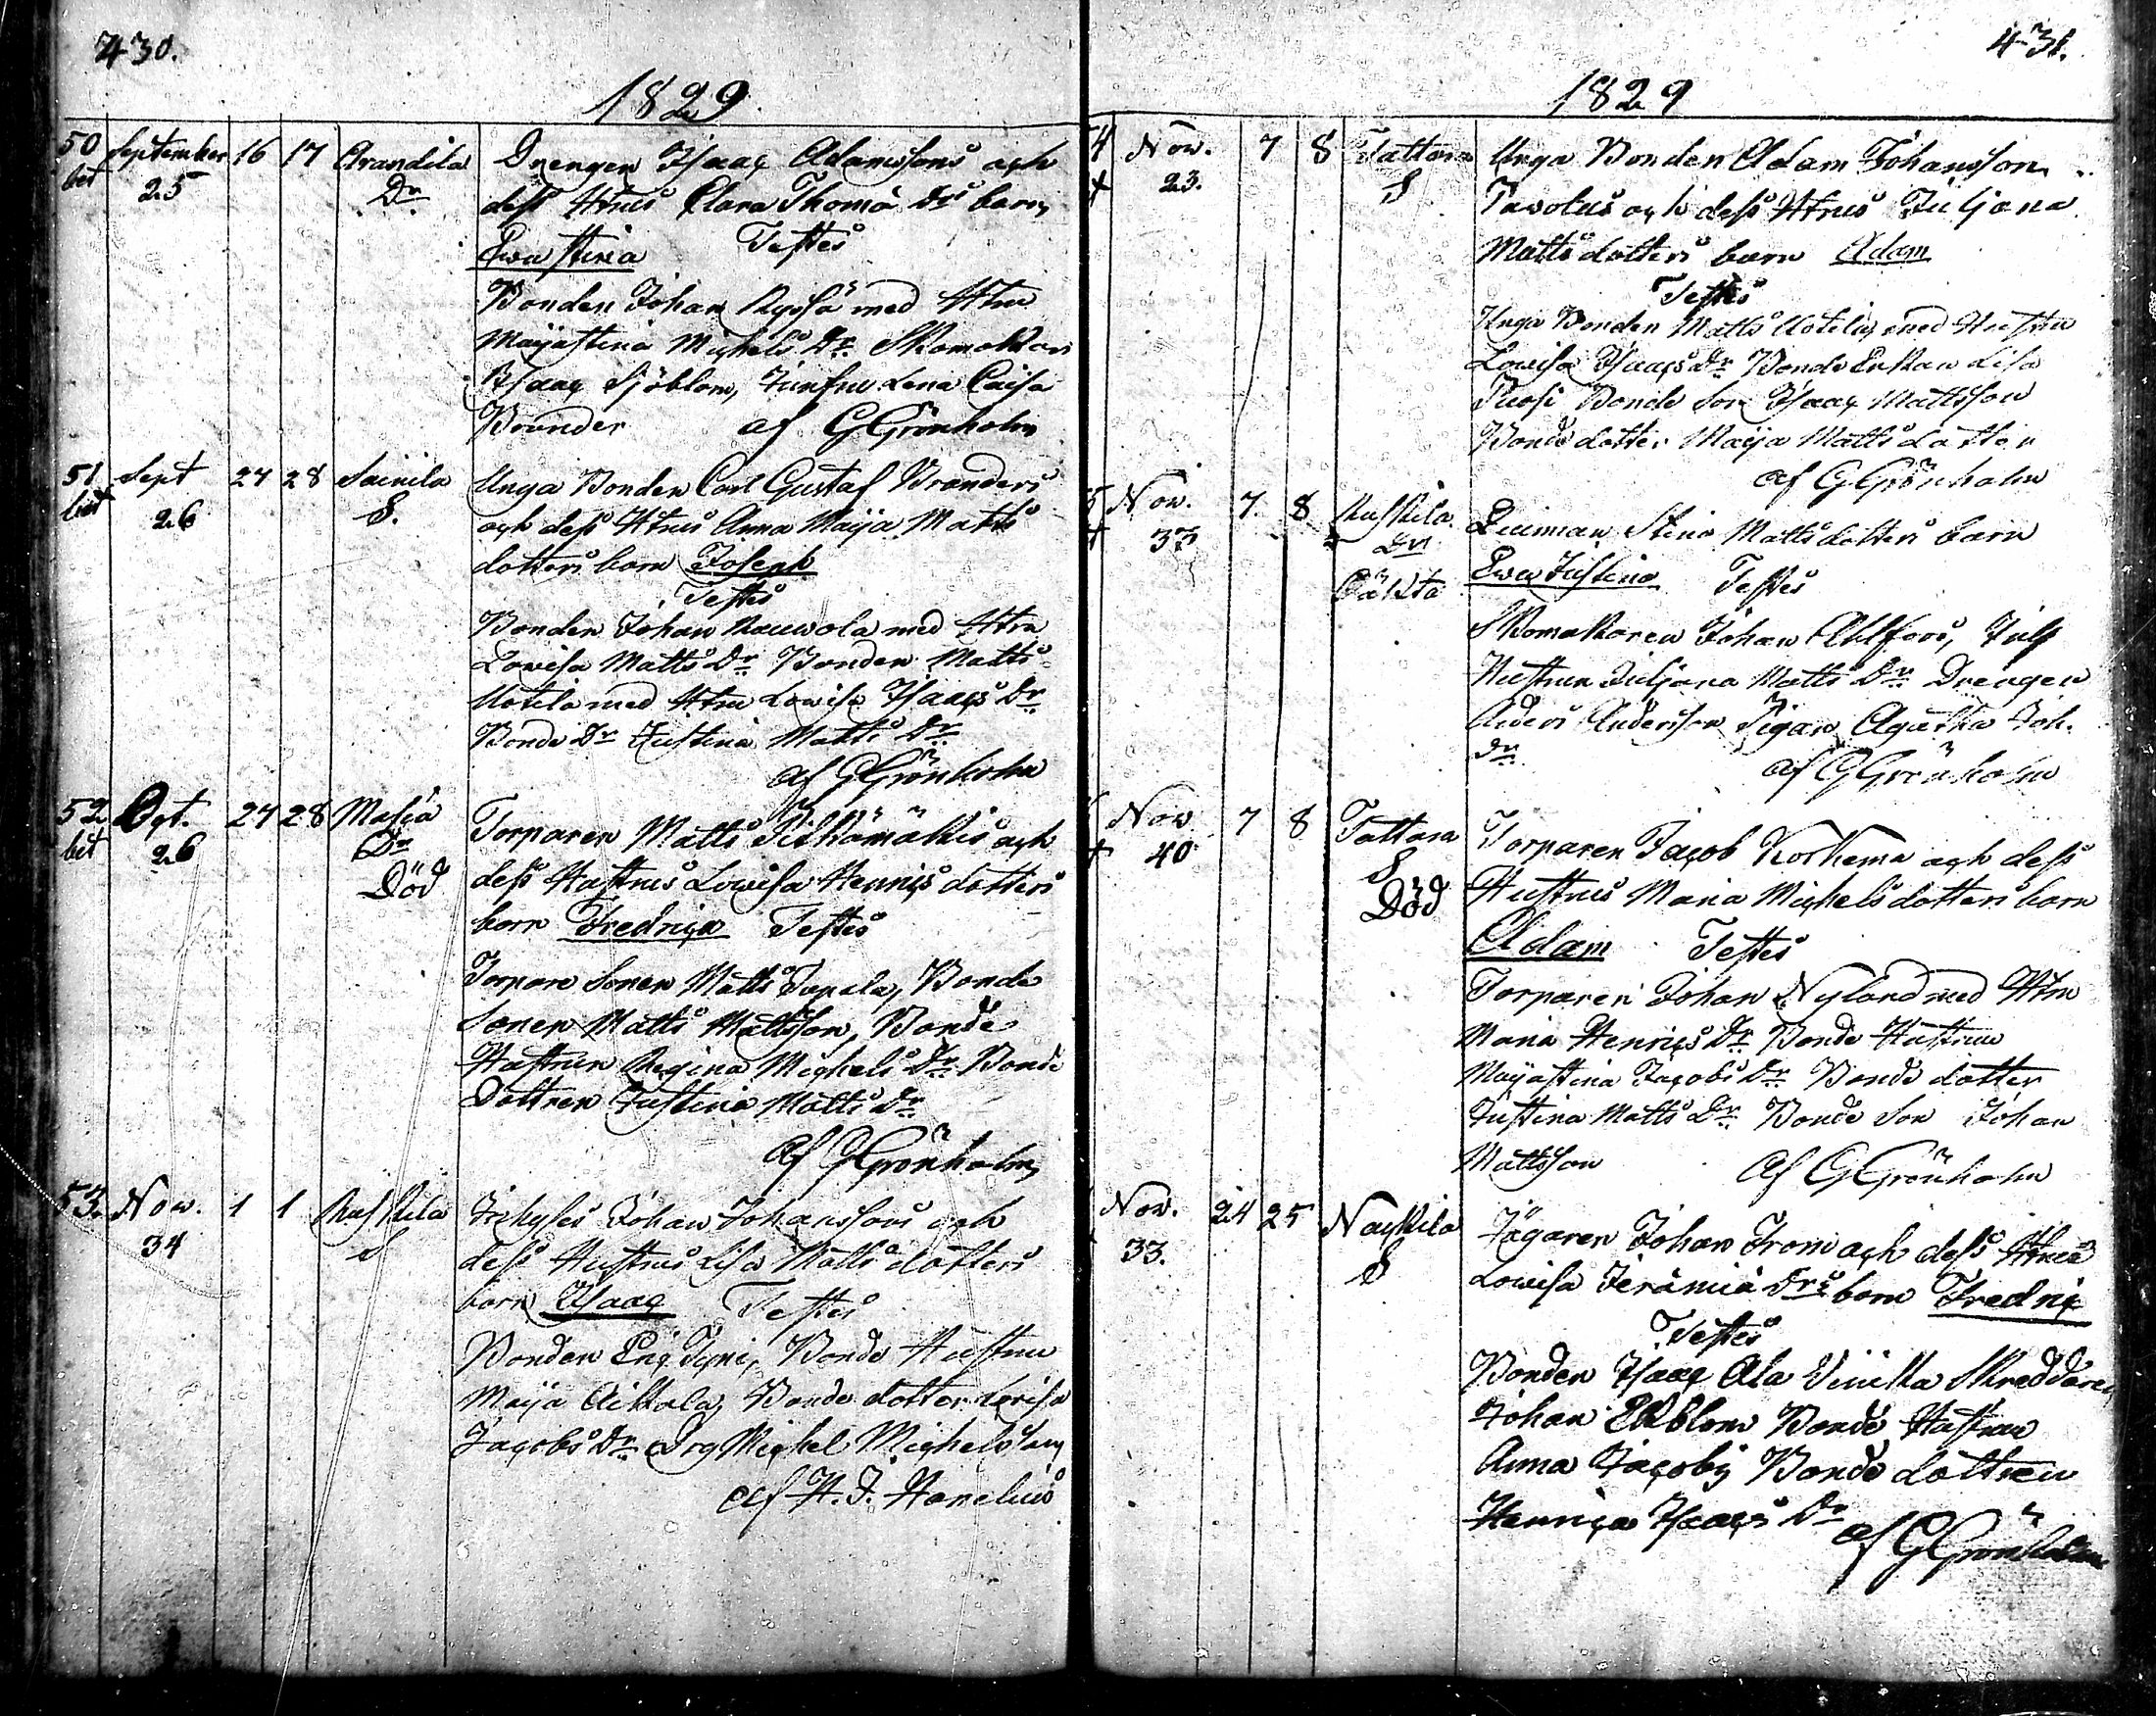 430.
1829.
50 September 16 17 Arandila Drengen Isaac Adamssons och
bet 25 Dr dess Htrus Clara Thomä Drs barn
Ewastina Testes
Bonden Johan Ryssä med Htru
Maijastina Michels Dr Skomakar
Isaac Sjöblom, Jungfru Lena Caisa
Brander af G Grönholm
51 Sept 27 28 Sainila Unga Bonden Carl Gustaf Branders
bet 26 S. och dess Htrus Anna Maija Matts
dotters barn Joseph
Testes
Bonden Johan Kauwola med Htru
Lowisa Matts Dr Bonden Matts
Uotila med Htru Lowisa Isaacs Dr
Bonde Dr Justina Matts Dr
af G Grönholm
52 Oct. 27 28 Dr Torparen Matts Pitkämäkis och
bet 26 Död dess Hustrus Lowisa Henrics dotters
barn Fredrica Testes
Torpare Sonen Matts Bonde
Sonen Matts Mattsson, Bonde
Hustrun Regina Michels Dr Bonde
Dottren Justina Matts Dr
af G Grönholm
53 Nov. 1 1 Ruskila Johan Johanssons och
34 S dess Hustrus Lisa Matts dotters
barn Isaac Testes
Bonden Eric Bonde Hustru
Maija Aikala, Bonde dotter Lovisa
Jacobs Dr Drg Michel Michelsson
af H. J. Hanelius
431.
1829
Nov. 7 8 Tattara Unga Bonden Adam Johansson
23. S Tavolus och dess Htrus Juljana
Matts dotters barn Adam
Testes
Unga Bonden Matts Uotila, med Hustru
Lowisa Isaacs Dr Bonde Enkan Lisa
Bonde Son Isaac Mattsson
Bonde dotter Maija Matts dotter
af G Grönholm
Nov. 7 8 Ruskila Stina Matts dotters barn
37 Dr Ewa Justina Testes
Oäkta
Skomakaren Johan Ahlfors,
Hustrun Juljana Matts Dr Drengen
Anders Andersson Pigan Agatha Joh.
Dr af G Grönholm
Nov 7 8 Tattara Torparen Jacob Korkema och dess
40 S Hustrus Maria Michels dotters barn
Död Adam Testes
Torparen Johan Nylund med Htru
Maria Henrics Dr Bonde Hustrun
Maijastina Jacobs Dr Bonde dotter
Justina Matts Dr Bonde Son Johan
Mattsson af G Grönholm
Nov. 24 25 Nackila Jägaren Johan From och dess Htrus
33. S Lowisa Jeremiä Drs barn Fredric
Testes
Bonden Isaac Ala Skreddaren
Johan Ekblom Bonde Hustrun
Anna Jacobi Bonde dottren
Henrica Isaacs Dr af G Grönholm